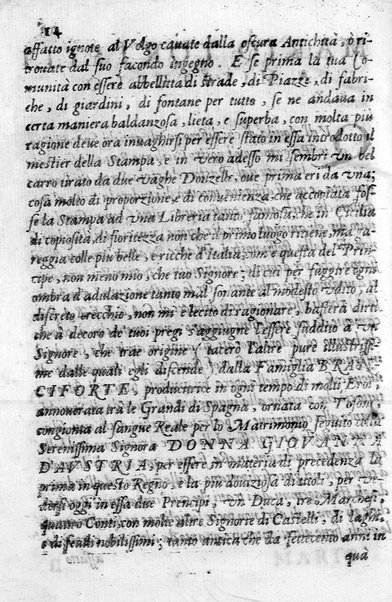 12
affatto ignote al Volgo cavate dalla oscura Antichità, ò ri-
trovate dal suo facondo ingegno. E se prima la tua Co-
munità con essere abbellitta di strade, di Piazze, di fabri-
che, di giardini, di fontane per tutto, se ne andava in
certa maniera baldanzosa, lieta, e superba, con molta più
ragione deve ora invaghirsi per essere stato in essa introdotto il
mestier della Stampa, e in vero adesso mi sembri vn bel
carro tirato da due vaghe Donzelle, ove prima eri da vna;
cosa molto di proporzione, e di convenienza che accopiata fos-
se la Stampa ad vna Libreria tanto famosa, che in Cicilia
di copiosità, di fioritezza non che il primo luogo ritiene, ma ga-
reggia colle più belle, e ricche d'Italia, com'è questa del Prin-
cipe, non meno mio, che tuo Signore; di cui per fuggire ogn'
ombra d'adulazione tanto mal sonante al modesto vdito, al
discreto orecchio, non mi è lecito di ragionare, basterà dirti
che à decoro de' tuoi pregi s'aggiugne l'essere suddito à vn
Signore, che trae origine (tacerò l'altre pure illustrissi-
me dalle quali egli discende) dalla Famiglia BRAN-
CIFORTE, produttrice in ogni tempo di molti Eroi
annoverata trà le Grandi di Spagna, ornata con Tosoni
congionta al sangue Reale per lo Matrimonio seguito colla
Serenissima Signora DONNA GIOVANNA
D'AVSTRIA, per essere in materia di precedenza la
prima in questo Regno, e la più doviziosa di titoli, per ve-
dersi oggi in essa due Prencipi, vn Duca, tre Marchesi,
quattro Conti, con molte altre Signorie di Castelli, di laghi,
e di feudi nobilissimi; tanto antica che da settecento anni in
quà